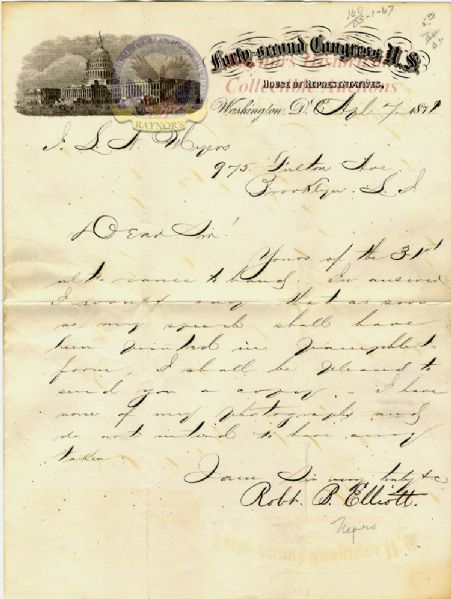 160
BS-1-67
Forty-second Congress U.S.
House of Representatives,
Raynors Historical
Collectible Auctions
RAYNORS'
Washington, D.C. Apl 7 187
J. L. N. Myers
975 Fulton Ave
Brooklyn L I
Dear Sir!
Yours of the 31st
ulto came to hand. In answer
I would say that as soon
as my speech shall have
been printed in pamphlet
form, I shall be pleased to
send you a copy. I have
none of my photographs and
do not intend to have any
taken
I am Sir very truly &c
Robt. B. Elliott.
Negro